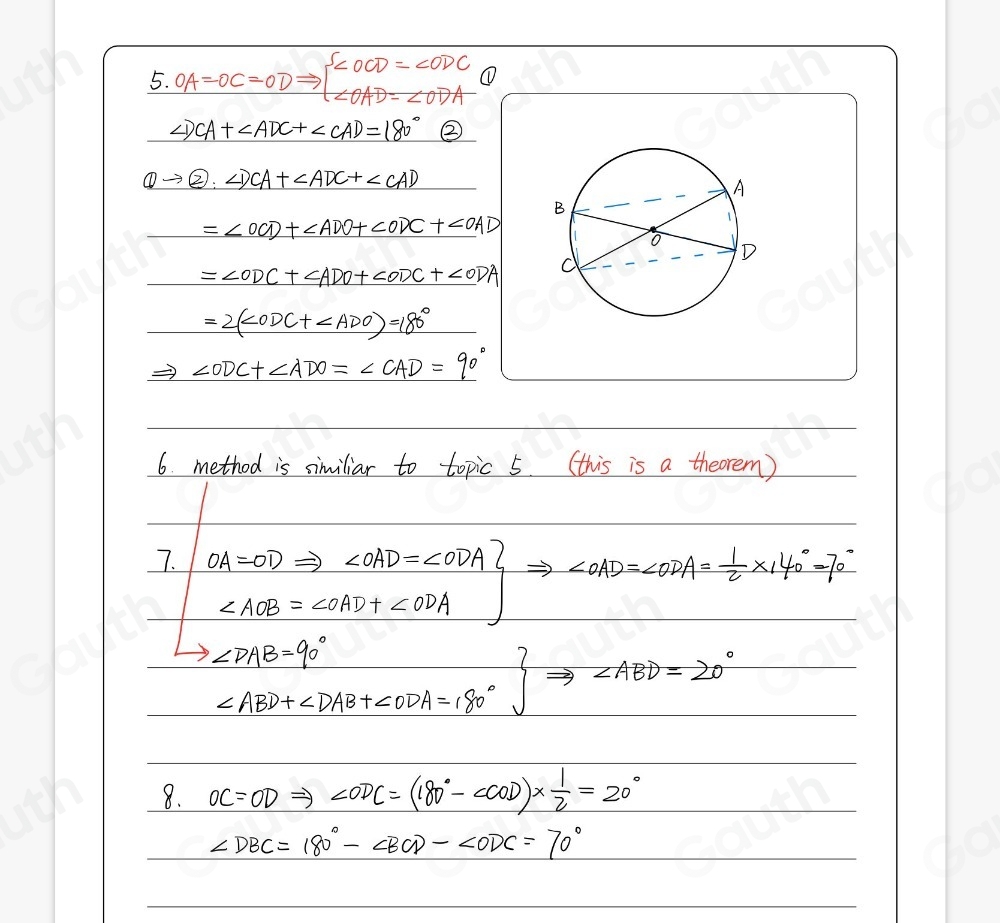 5. OA=OC=OD⇒{∠OCD=∠ODC ①
∠OAD=∠ODA
∠DCA+∠ADC+∠CAD=180° ②
①→②: ∠DCA+∠ADC+∠CAD
=∠OCD+∠ADO+∠ODC+∠OAD
=∠ODC+∠ADO+∠ODC+∠ODA
=2(∠ODC+∠ADO)=180°
⇒ ∠ODC+∠ADO=∠CAD=90°
A
B
O
D
C
6. method is similiar to topic 5. (this is a theorem)
7. OA=OD ⇒ ∠OAD=∠ODA } ⇒ ∠OAD=∠ODA=1/2×140°=70°
∠AOB=∠OAD+∠ODA
∠DAB=90° } ⇒ ∠ABD=20°
∠ABD+∠DAB+∠ODA=180°
8. OC=OD ⇒ ∠ODC=(180°-∠COD)×1/2=20°
∠DBC=180°-∠BCD-∠ODC=70°
Gauth